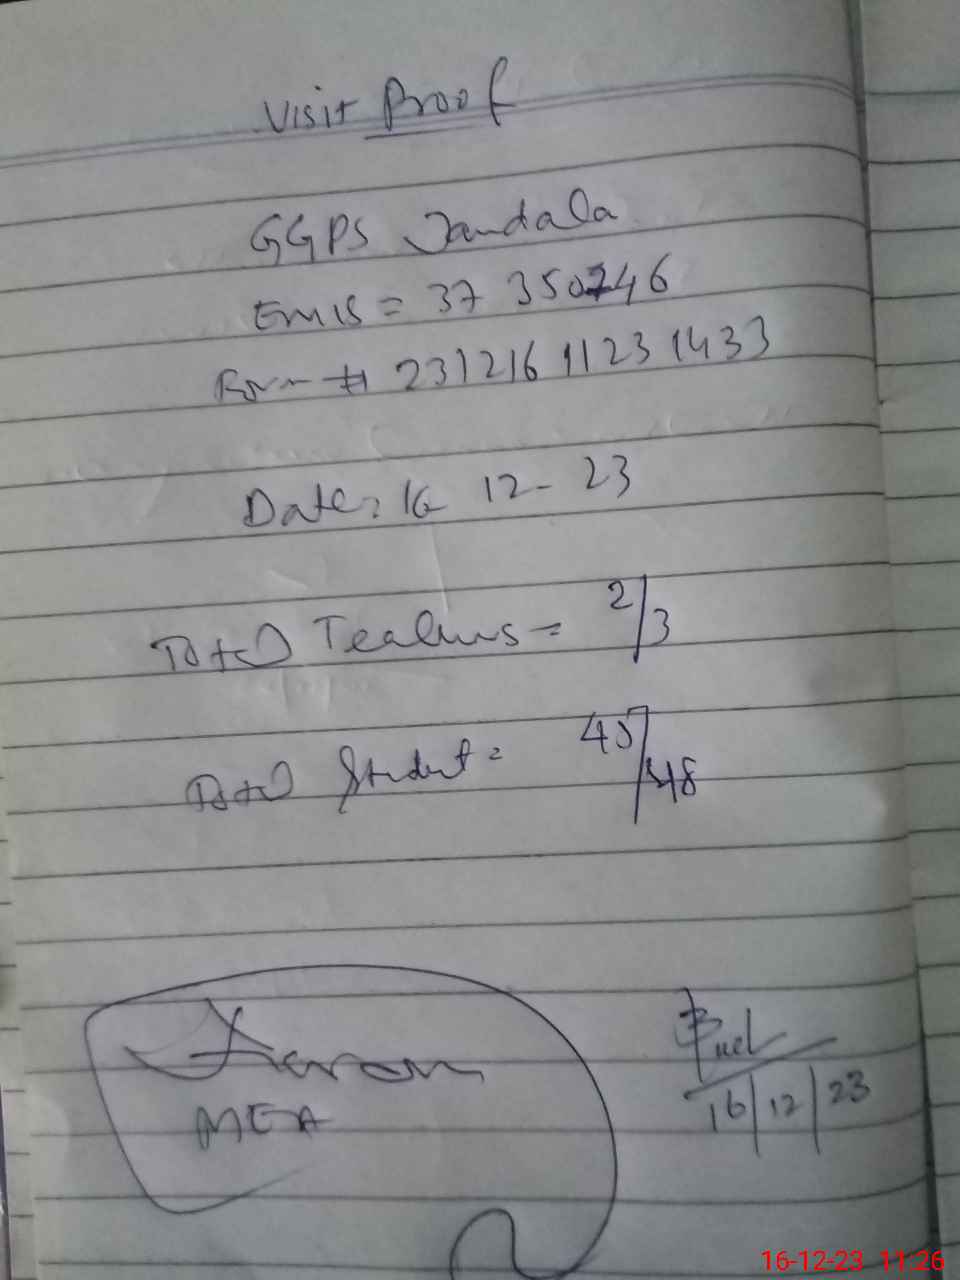 Visit Proof
GGPS Jandala
Emis = 37 350246
Form # 231216 11231433
Date: 16 12 - 23
Total Teachers = 2/3
Total Student = 45/48
MEA
16/12/23
16-12-23 11:26